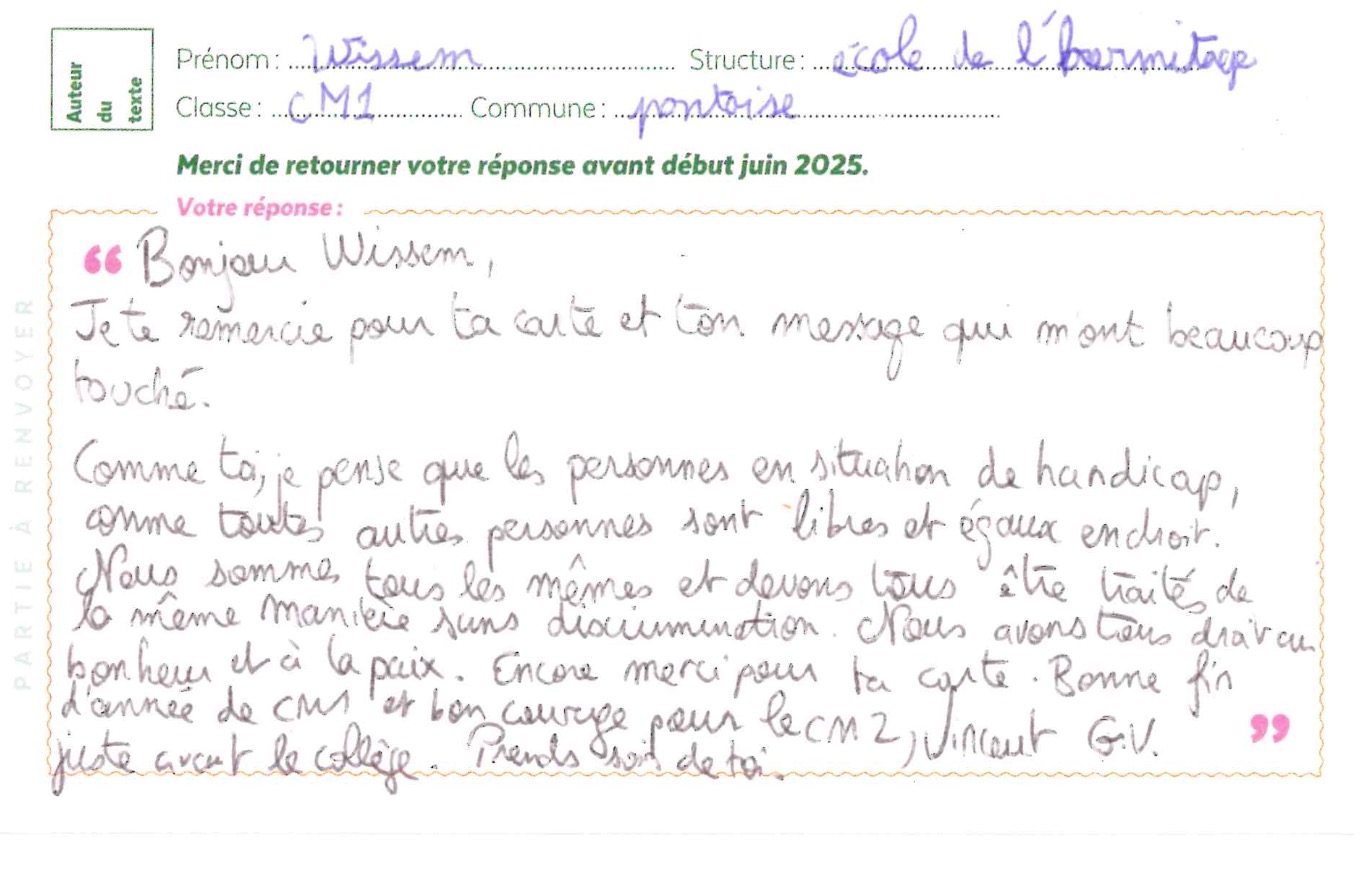 Auteur du texte
Prénom : Wissem Structure : école de l'hermitage
Classe : CM1 Commune : pontoise
Merci de retourner votre réponse avant début juin 2025.
Votre réponse :
“ Bonjour Wissem,
Je te remercie pour ta carte et ton message qui m'ont beaucoup
touché.
Comme toi, je pense que les personnes en situation de handicap,
comme toutes autres personnes sont libres et égaux en droit.
Nous sommes tous les mêmes et devons tous être traités de
la même manière sans discrimination. Nous avons tous droit au
bonheur et à la paix. Encore merci pour ta carte. Bonne fin
d'année de CM1 et bon courage pour le CM2,
juste avant le collège. Prends soin de toi.
Vincent G.V. ”
PARTIE À RENVOYER